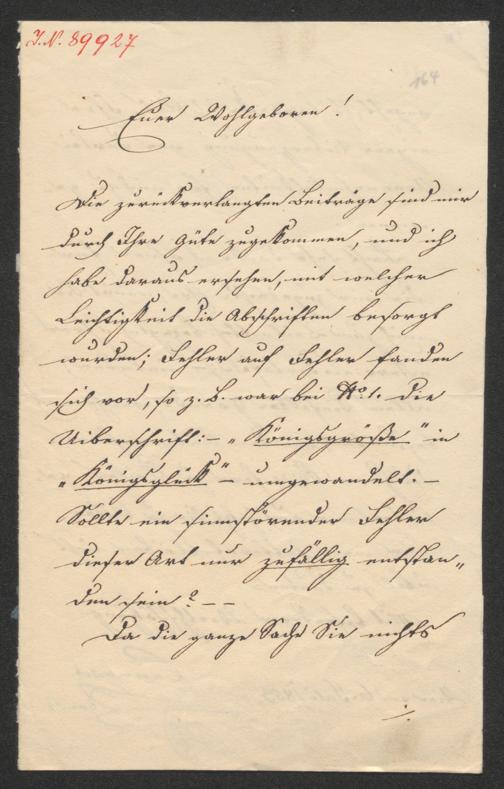 I.N. 89927
164
Euer Wohlgeboren!
Die zurückverlangten Beiträge sind mir
durch Ihre Güte zugekommen, und ich
habe daraus ersehen, mit welcher
Leichtigkeit die Abschriften besorgt
wurden; Fehler auf Fehler fanden
sich vor, so z. B. war bei No. 1. die
Uiberschrift:– „Königsgröße" in
„Königsglück" – umgewandelt. –
Sollte ein sinnstörender Fehler
dieser Art nur zufällig entstan„
den sein? – –
Da die ganze Sache Sie nichts
./.